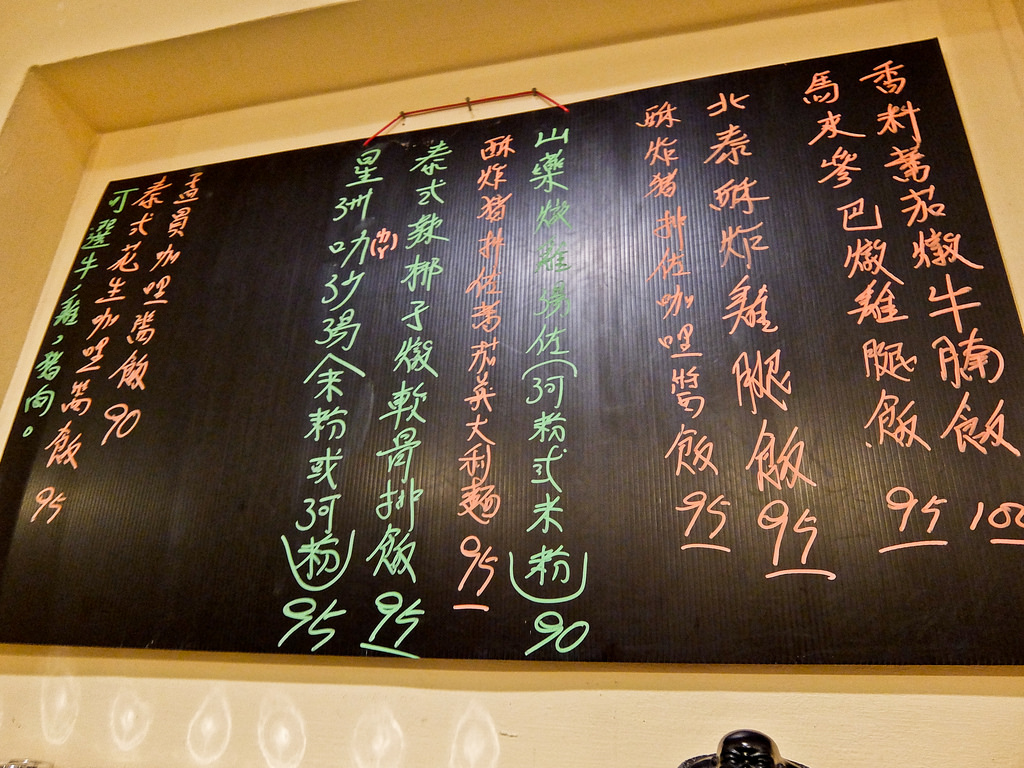 香料蕃茄燉牛腩飯 100
馬來參巴燉雞腿飯 95
北泰酥炸雞腿飯 95
酥炸猪排佐咖哩醬飯 95
山藥燉雞湯佐(河粉或米粉) 90
酥炸猪排佐蕃茄義大利麵 95
泰式辣椰子燉軟骨排飯 95
星洲叻沙湯(米粉或河粉) 95
孟買咖哩醬飯 90
泰式花生咖哩醬飯 95
可選牛,雞,猪肉。